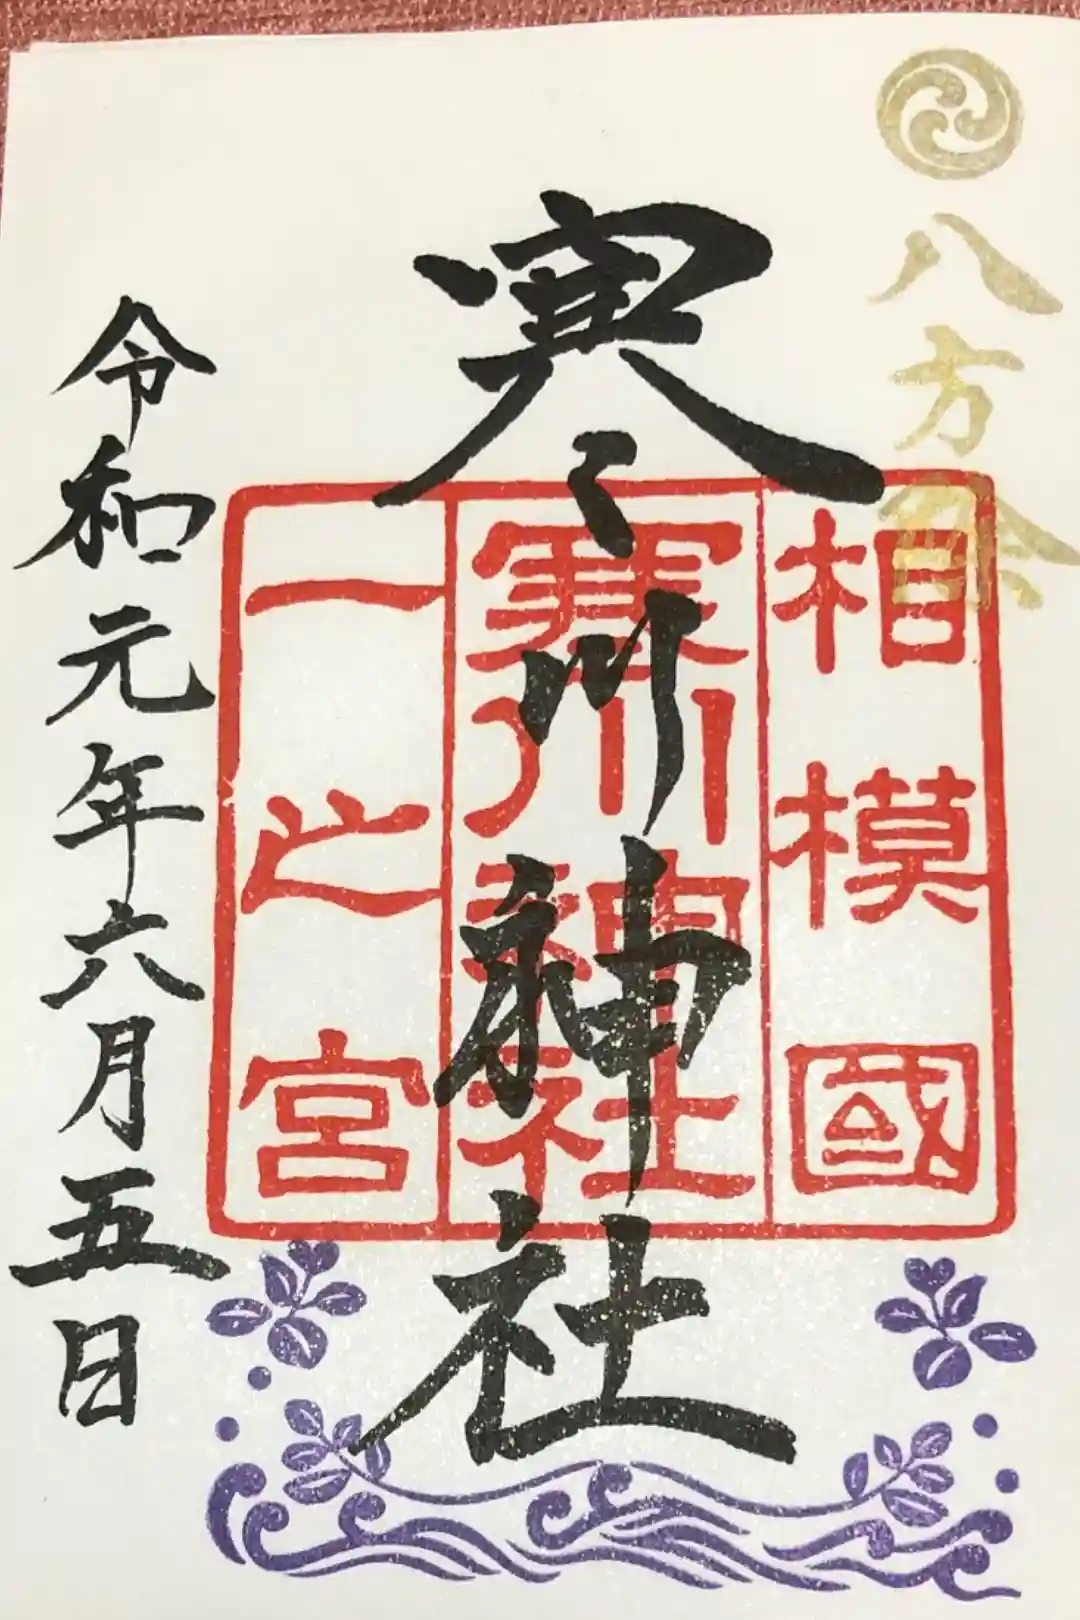 八方除
寒川神社
相模國
寒川神社
一之宮
令和元年六月五日